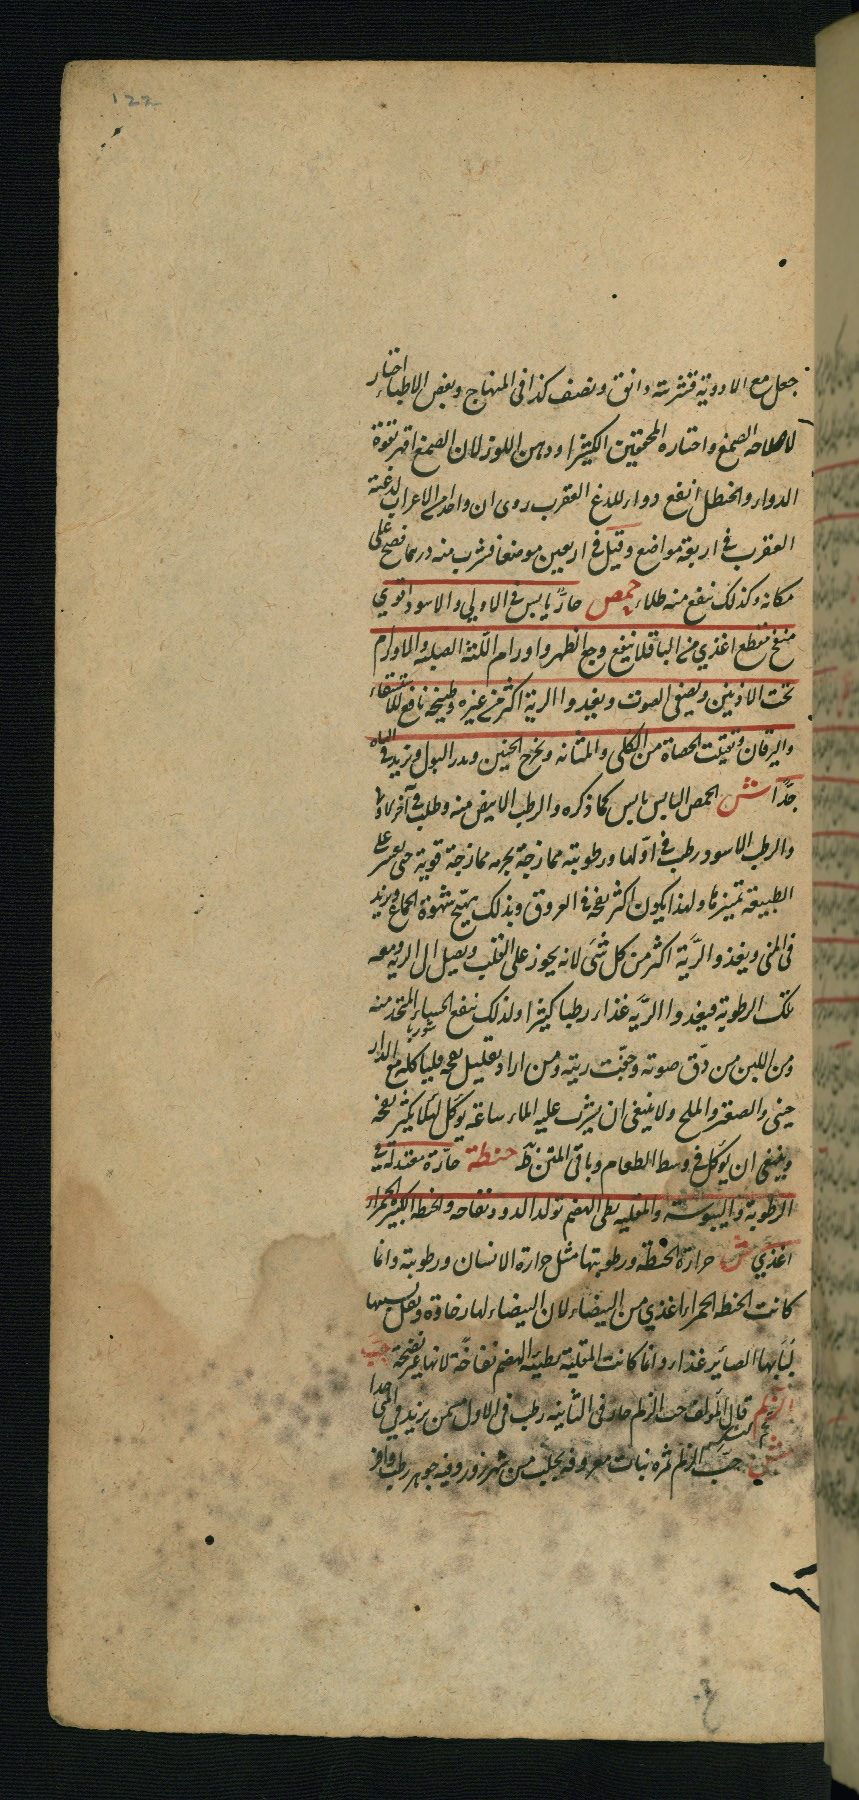 ١٢٢
جعل مع الادوية فشربته دانق ونصف كذا فى المنهاج وبعض الاطباء اختار
لاصلاحه الصمغ واختاره المحققين الكثيرا ودهن اللوز لان الصمغ اقهر لقوة
الدواء والحنظل انفع دواء للدغ العقرب روى ان واحدا من الاعراب لدغته
العقرب فى اربعة مواضع وقيل فى اربعين موضعا فشرب منه درهما فصح على
مكانه وكذلك نفع منه طلاء حمص حار يابس فى الاولى والاسود اقوي
منفخ مقطع اغذي من الباقلا ينفع وجع الظهر واورام اللثة الصلبة والاورام
تحت الاذنين ويصفى الصوت ويغدوا الرية اكثر من غيره وطبيخه نافع للاستسقاء
واليرقان وتفتت الحصاة من الكلى والمثانه ويخرج الجنين ويدر البول ويزيد فى الباه
جدًا ش الحمص اليابس يابس كما ذكره والرطب الابيض منه رطب فى آخر الاولى
والرطب الاسود رطب فى اولها ورطوبته ممازجة بجرمه ممازجة قوية حتى يعسر على
الطبيعة تميزها ولهذا يكون اكثر نفخه فى العروق وبذلك يهيج شهوة الجماع ويزيد
فى المنى ويغذو الرَّية اكثر من كل شئ لانه يجوز على القلب ويصل الى الرية ومعه
تلك الرطوبة فيغدوا الرَّية غذاء رطبا كثيرا ولذلك ينفع الحساء المتخذ منه
شوربا
ومن اللبن من دق صوته وجفت ريته ومن اراد تقليل نفخه فلياكله مع الدار
صينى والصعتر والملح ولا ينبغى ان يشرب عليه الماء ساعة يؤكل لئلا يكثر نفخه
وينبغى ان يؤكل فى وسط الطعام وباقى المتن ظ حنطة حارة معتدلة فى
الرطوبة واليبوسة والمقليه بطى الهضم تولد الدود ونفاخه والحنطه الكثيرة الحمراء
اغذي ش حرارة الحنطة ورطوبتها مثل حرارة الانسان ورطوبته وانما
كانت الحنطه الحمراء اغذي من البيضاء لان البيضاء لها رخاوة وبقل بسببها
لُبابها الصائر غذاء وانما كانت المقلية بطيئة الهضم نفاخة لانها غير نضجة حب
الزلم قال المؤلف حب الزلم حار فى الثانيه رطب فى الاول مسمن يزيد فى المنى جدا
ش حبّ الزلم ثمره نبات معروفه يجلب من شهرزور وفيه جوهر رطب وافر